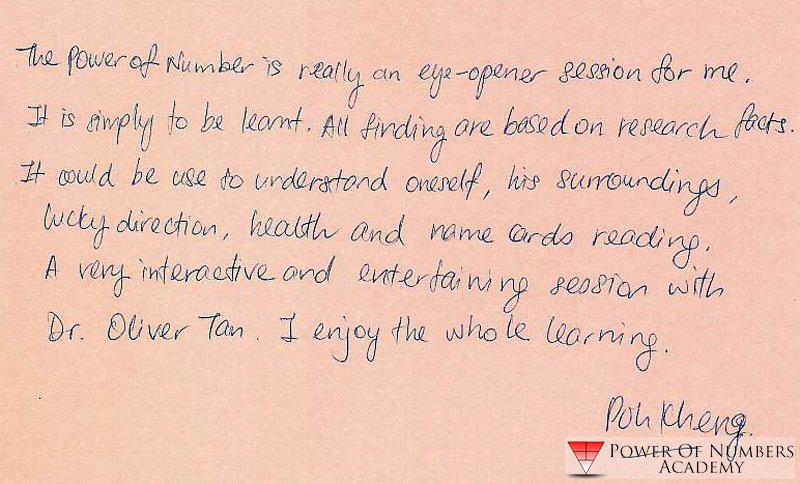 The Power of Number is really an eye-opener session for me.
It is simply to be learnt. All finding are based on research facts.
It could be use to understand oneself, his surroundings,
lucky direction, health and name cards reading.
A very interactive and entertaining session with
Dr. Oliver Tan. I enjoy the whole learning.
Poh Kheng.
POWER OF NUMBERS
ACADEMY